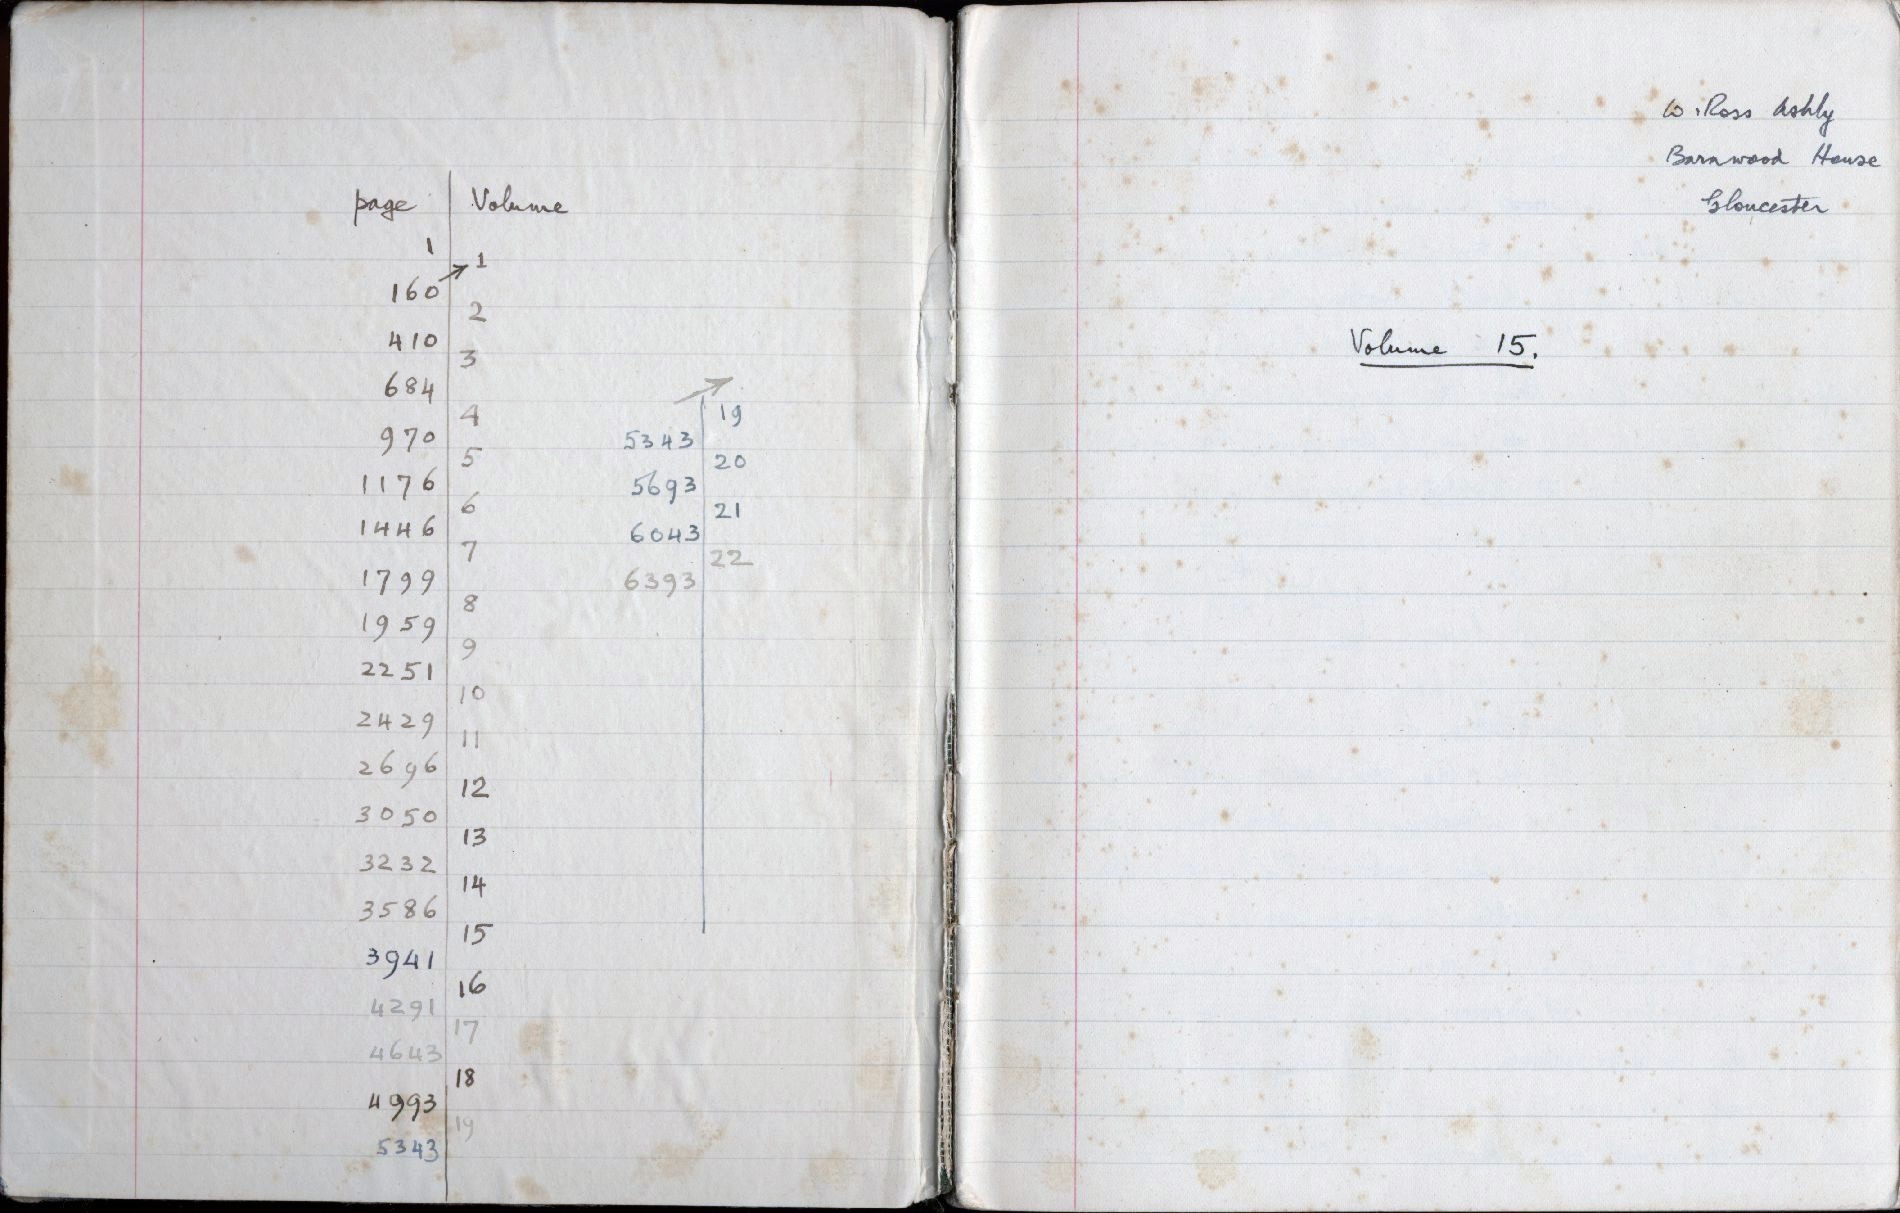 page Volume
1
1
160
2
410
3
684
4
970
5
1176
6
1446
7
1799
8
1959
9
2251
10
2429
11
2696
12
3050
13
3232
14
3586
15
3941
16
4291
17
4643
18
4993
19
5343
19
5343
20
5693
21
6043
22
6393
W. Ross Ashby
Barnwood House
Gloucester
Volume 15.